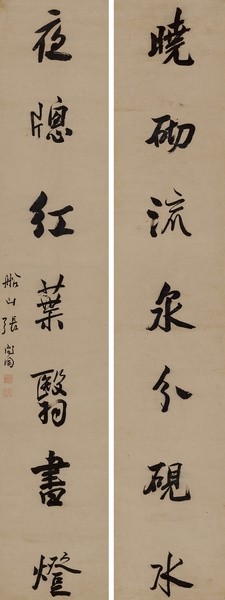 曉砌流泉分硯水
夜牕紅葉翳書燈
船山張問陶